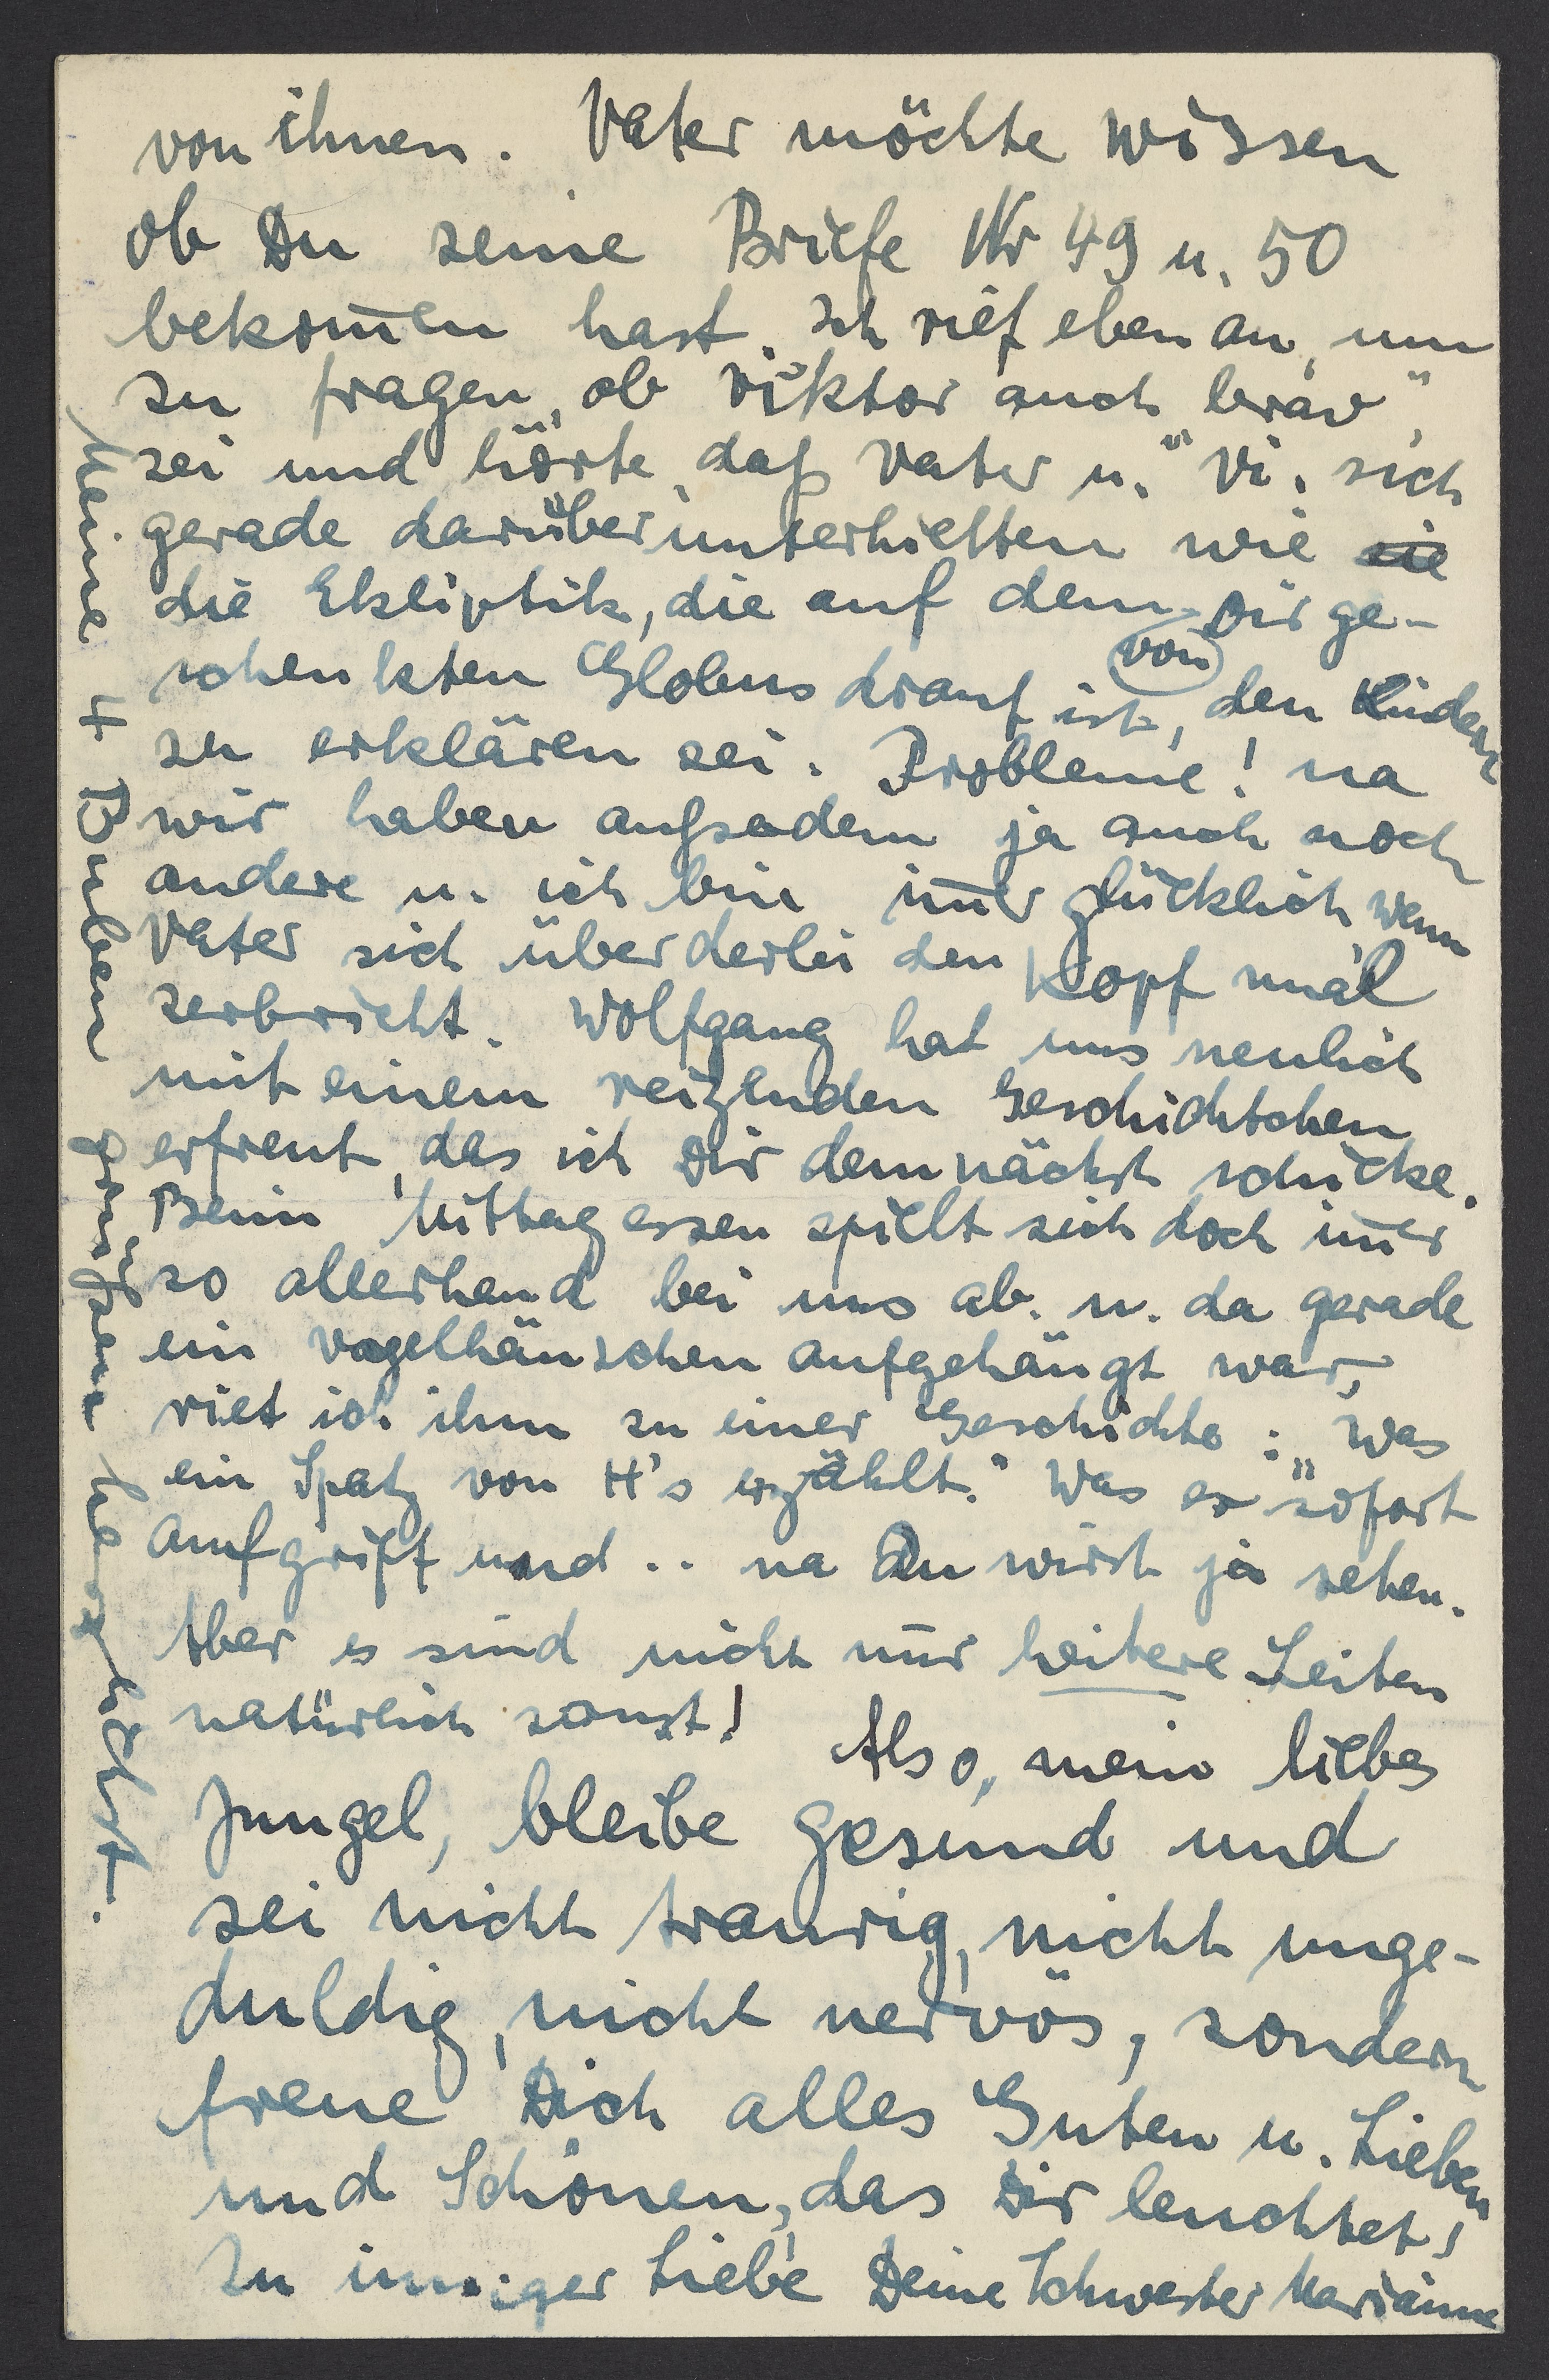 von ihnen. Vater möchte wissen
ob Du seine Briefe Nr 49 u. 50
bekom̅en hast. Ich rief eben an, um
zu fragen, ob Viktor auch „brav"
sei und hörte, daß Vater u. Vi. sich
gerade darüber unterhielten wie sie
die Ekliptik, die auf dem von Dir ge-
schenkten Globus drauf ist, den Kindern
zu erklären sei. Probleme! na
wir haben außerdem ja auch noch
andere u. ich bin im̅er glücklich, wenn
Vater sich über derlei den Kopf mal
zerbricht. Wolfgang hat uns neulich
mit einem reizenden Geschichtchen
erfreut, das ich Dir demnächst schicke.
Beim Mittagessen spielt sich doch im̅er
so allerhand bei uns ab. u. da gerade
ein Vogelhäuschen aufgehängt war,
riet ich ihm zu einer Geschichte: „Was
ein Spatz von H's erzählt." Was er sofort
aufgriff und .. na Du wirst ja sehen.
Aber es sind nicht nur heitere Zeiten
natürlich sonst! Also, mein liebes
Jungel, bleibe gesund und
sei nicht traurig, nicht unge-
duldig, nicht nervös, sondern
freue Dich alles Guten u. Lieben
und Schönen, das Dir leuchtet!
In inniger Liebe Deine Schwester Marianne
Meine 4 Buben grüßen herzlichst.